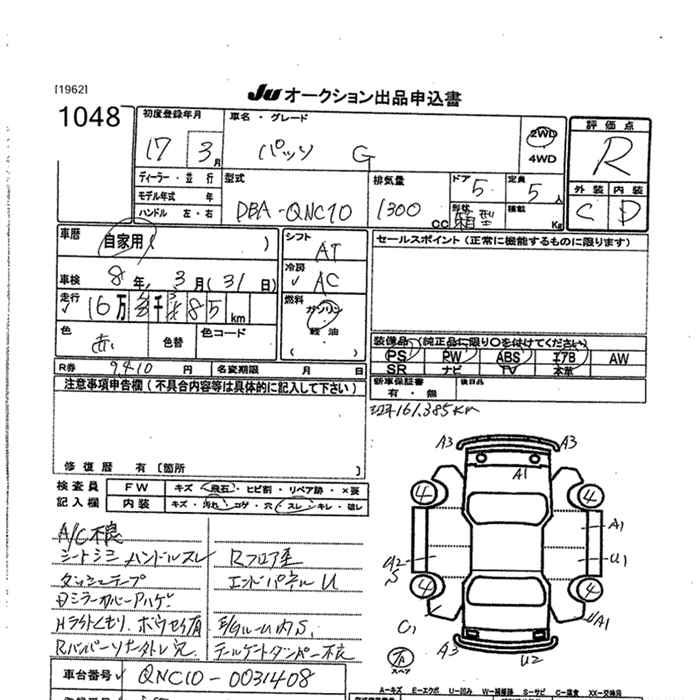 [1962]
JU オークション出品申込書
1048
初度登録年月
車名・グレード
17 3月
パッソ G
2WD
4WD
評価点
R
外装 内装
C D
ディーラー・並行
モデル年式 年
ハンドル 左・右
型式
DBA-QNC10
排気量
1300 CC
ドア 5
定員 5人
形状
箱型
積載 Kg
車歴
自家用( )
シフト AT
セールスポイント(正常に機能するものに限ります)
車検 8年, 3月(31日)
冷房 AC
走行 16万 千 385 km
燃料
ガソリン
軽油
( )
色 赤
色替
色コード
装備品(純正品に限り○を付けてください)
PS PW ABS エアB AW
SR ナビ TV 本革
R券 9,410円
名変期限 月 日
新車保証書
有・無
後日品
注意事項申告欄(不具合内容等は具体的に記入して下さい)
161,385km
修復歴 有[箇所 ]
検査員
記入欄
FW キズ・飛石・ヒビ割・リペア跡・×要
内装 キズ・汚れ・コゲ・穴・スレ・キレ・破レ
A/C不良
シートシミ ハンドルスレ
Rフロア歪
ダッシュテープ
エンドパネルU
ミラーカバーハゲ
Hライトくもり, ボウセイ有
E/Gルーム内S,
テールゲートダンパー不良
A3 A3
A1
4 4
A1
U2
S
U1
4 4
C1
A3
U2
UA1
スペア
車台番号 QNC10-0031408
A=キズ E=エクボ U=凹み W=補修跡 S=サビ C=腐食 XX=交換済